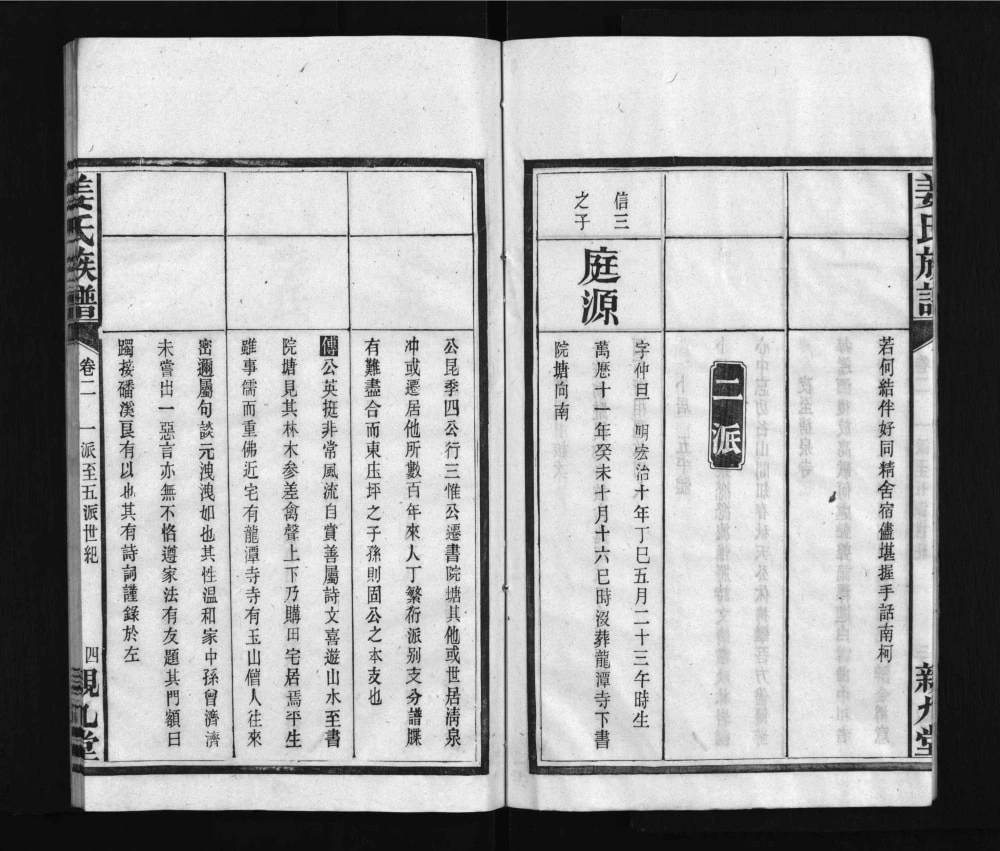 姜氏族譜
若何結伴好同精舍宿儘堪握手話南柯
二派
信三
之子
庭源
字仲曰 明宏治十年丁巳五月二十三午時生
萬曆十一年癸未十月十六巳時沒葬龍潭寺下書
院塘向南
公昆季四公行三惟公遷書院塘其他或世居清泉
冲或遷居他所數百年來人丁繁衍派别支分譜牒
有難盡合而東庄坪之子孫則固公之本支也
傳公英挺非常風流自賞善屬詩文喜遊山水至書
院塘見其林木參差禽聲上下乃購田宅居焉平生
雖事儒而重佛近宅有龍潭寺寺有玉山僧人往來
密邇屬句談元洩洩如也其性溫和家中孫曾濟濟
未嘗出一惡言亦無不恪遵家法有友題其門額曰
躅接磻溪良有以也其有詩詞謹錄於左
姜氏族譜
卷二 一派至五派世紀
四
親九堂